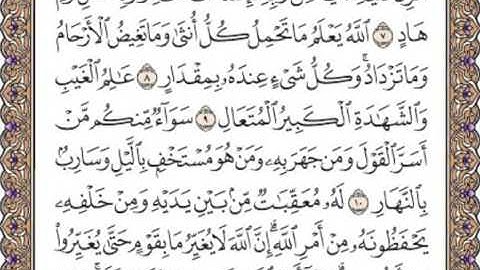 هَادٍ ٧ ٱللَّهُ يَعْلَمُ مَا تَحْمِلُ كُلُّ أُنثَىٰ وَمَا تَغِيضُ ٱلْأَرْحَامُ
وَمَا تَزْدَادُ ۖ وَكُلُّ شَىْءٍ عِندَهُۥ بِمِقْدَارٍ ٨ عَٰلِمُ ٱلْغَيْبِ
وَٱلشَّهَٰدَةِ ٱلْكَبِيرُ ٱلْمُتَعَالِ ٩ سَوَآءٌ مِّنكُم مَّنْ
أَسَرَّ ٱلْقَوْلَ وَمَن جَهَرَ بِهِۦ وَمَنْ هُوَ مُسْتَخْفٍۭ بِٱلَّيْلِ وَسَارِبٌۢ
بِٱلنَّهَارِ ١٠ لَهُۥ مُعَقِّبَٰتٌ مِّنۢ بَيْنِ يَدَيْهِ وَمِنْ خَلْفِهِۦ
يَحْفَظُونَهُۥ مِنْ أَمْرِ ٱللَّهِ ۗ إِنَّ ٱللَّهَ لَا يُغَيِّرُ مَا بِقَوْمٍ حَتَّىٰ يُغَيِّرُوا۟